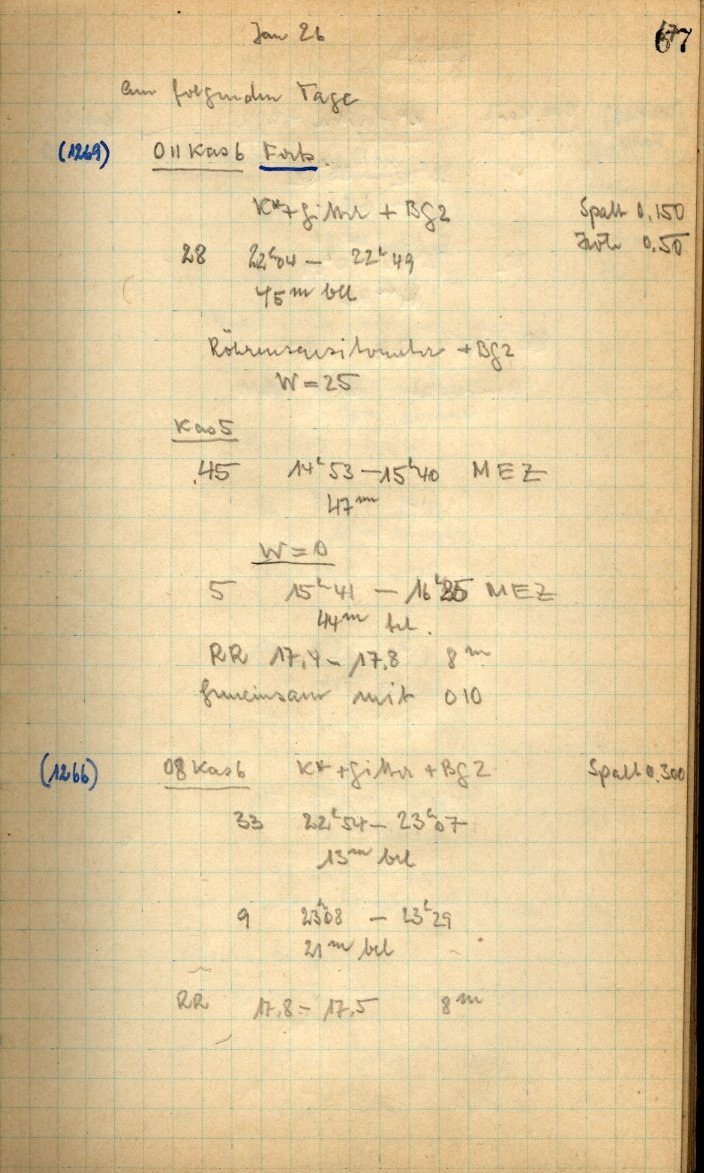 Jan 26
67
am folgenden Tage
(1269) 011 Kas 6 Forts.
K*+Gitter + BG2 Spalt 0,150
Höhe 0.50
28 22h04 – 22h49
45m bel
Röhrensensitometer + BG2
W = 25
Kas 5
45 14h53 – 15h40 MEZ
47m
W = 0
5 15h41 – 16h25 MEZ
44m bel.
RR 17,4 – 17,8 8m
gemeinsam mit 010
(1266) 08 Kas 6 K* + Gitter + BG2 Spalt 0.300
33 22h54 – 23h07
13m bel
9 23h08 – 23h29
21m bel
RR 17,8 – 17,5 8m